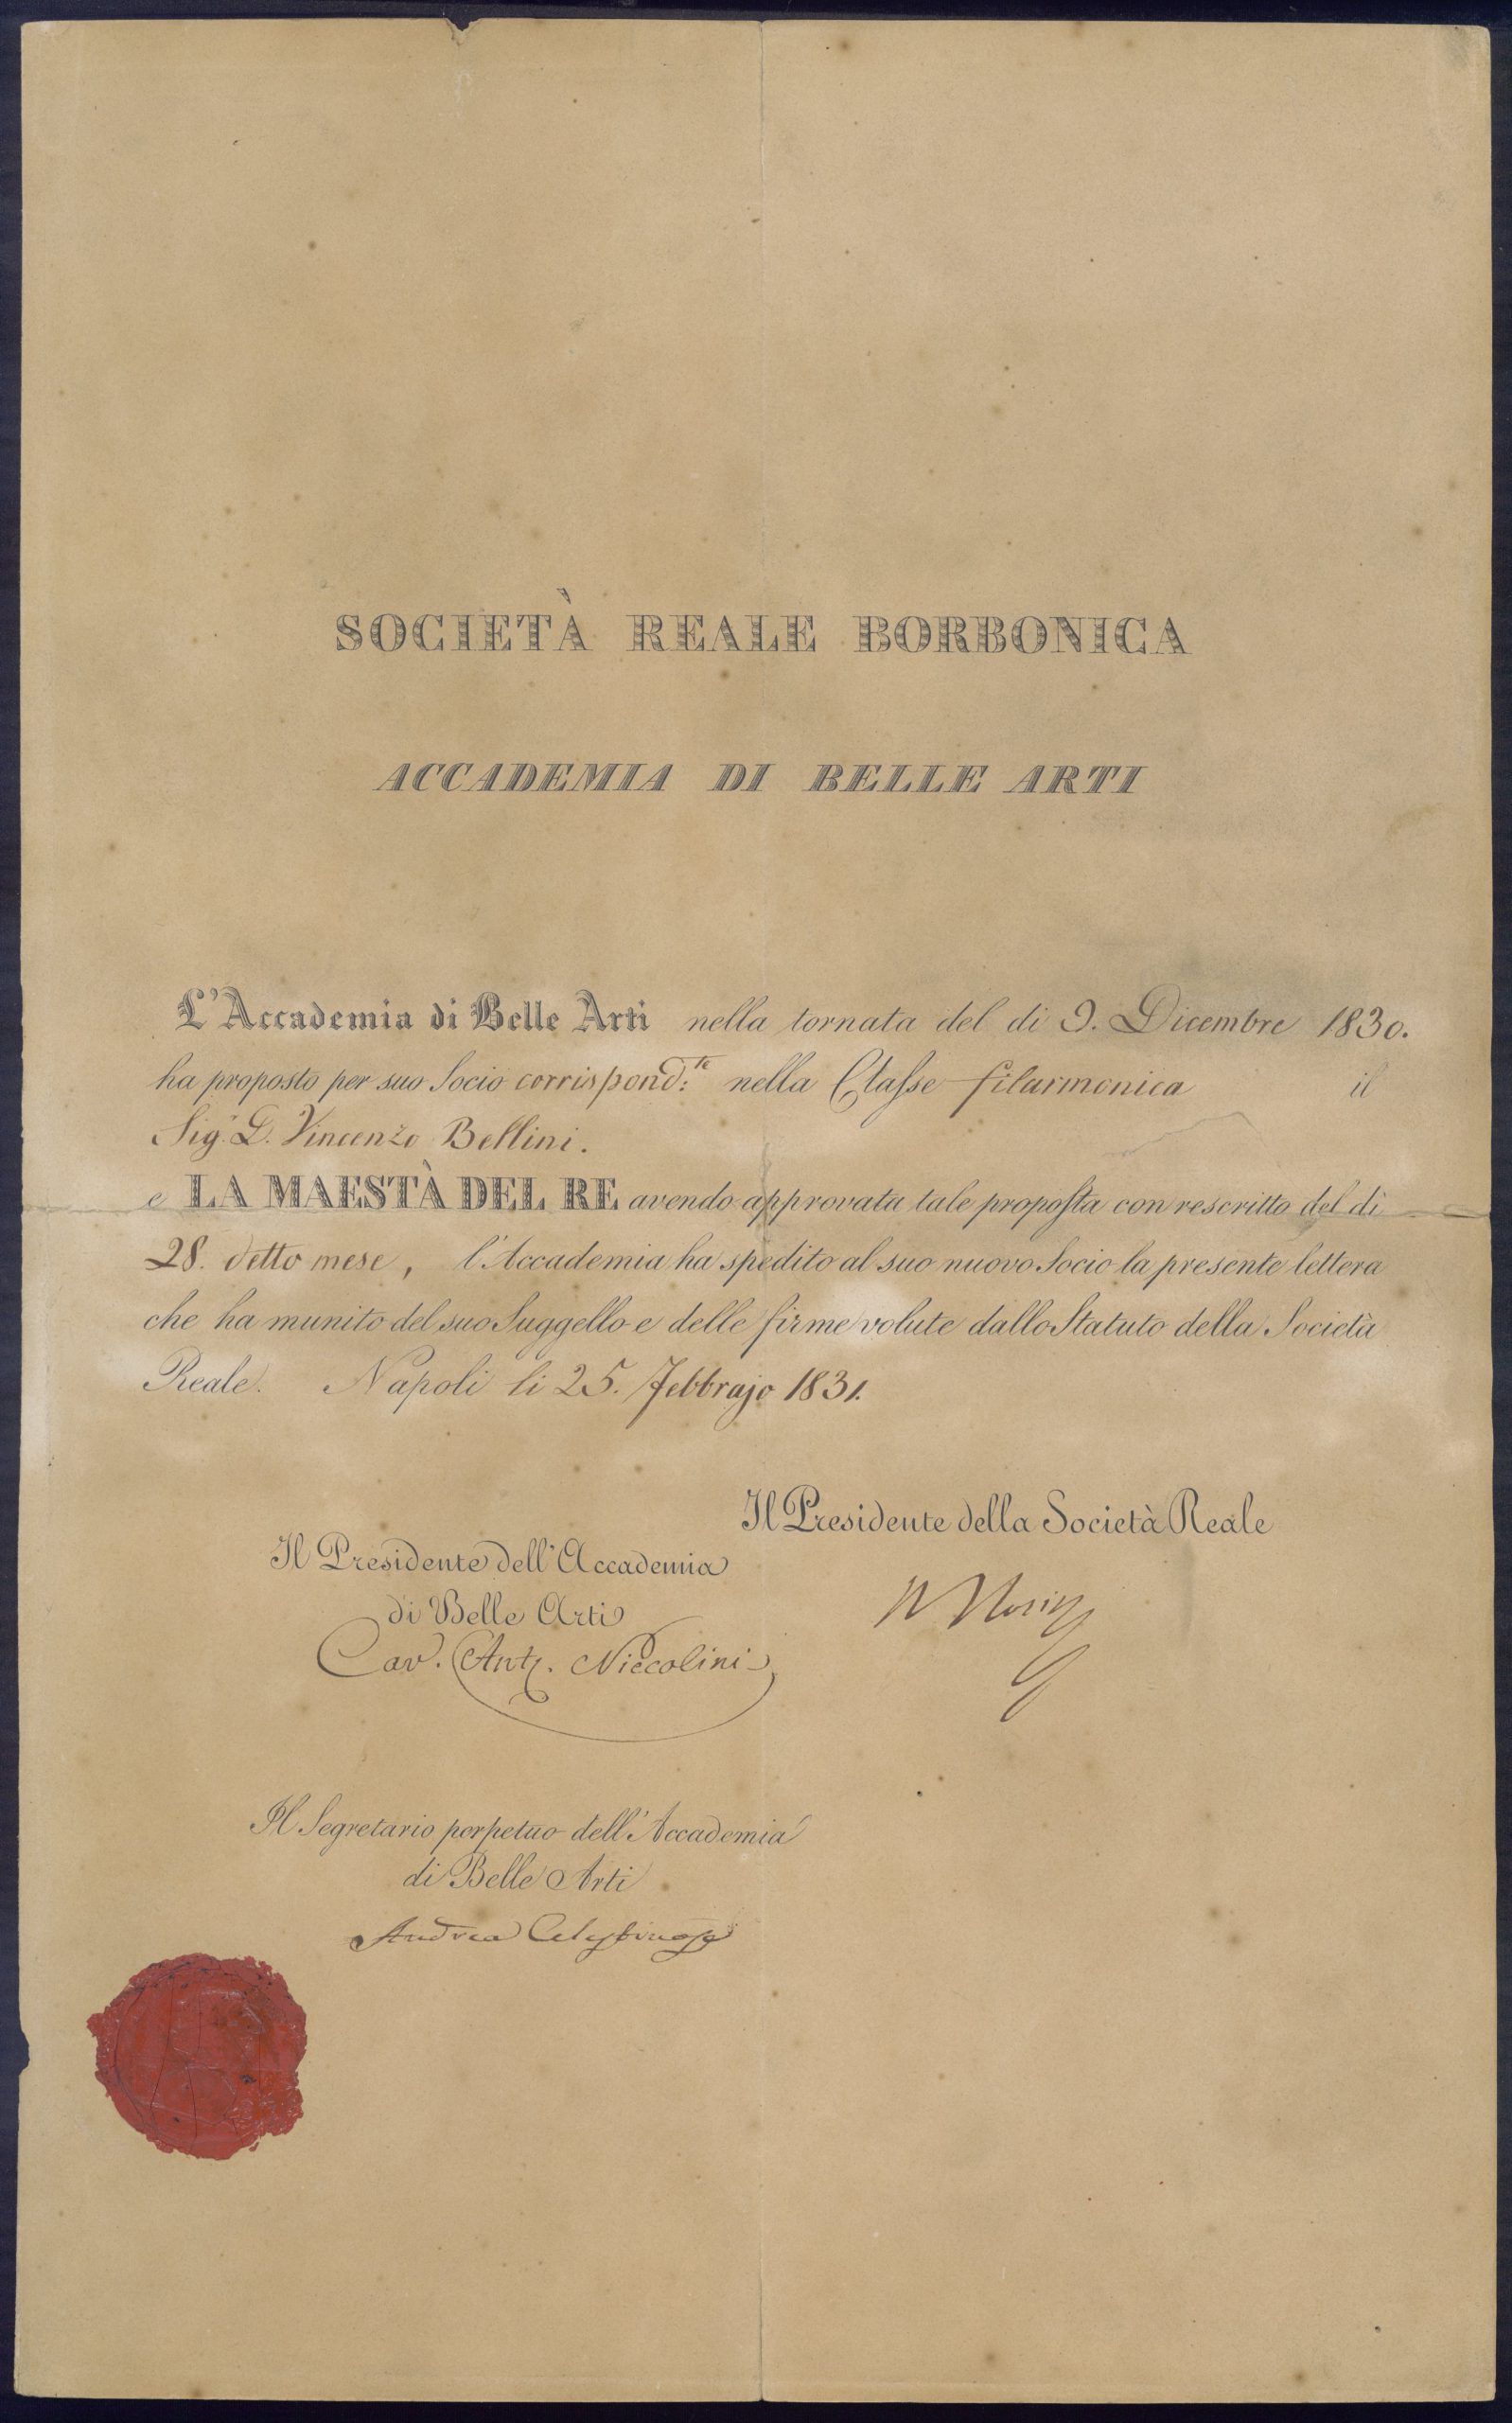 SOCIETÀ REALE BORBONICA
ACCADEMIA DI BELLE ARTI
L'Accademia di Belle Arti nella tornata del di 9. Dicembre 1830.
ha proposto per suo Socio corrispond:te nella Classe filarmonica il
Sig.r D. Vincenzo Bellini.
e LA MAESTÀ DEL RE avendo approvata tale proposta con rescritto del dì
28. detto mese, l'Accademia ha spedito al suo nuovo Socio la presente lettera
che ha munito del suo Suggello e delle firme volute dallo Statuto della Società
Reale. Napoli li 25. Febbrajo 1831.
Il Presidente della Società Reale
Il Presidente dell'Accademia
di Belle Arti
Cav. Ant. Niccolini
Il Segretario perpetuo dell'Accademia
di Belle Arti
Andrea